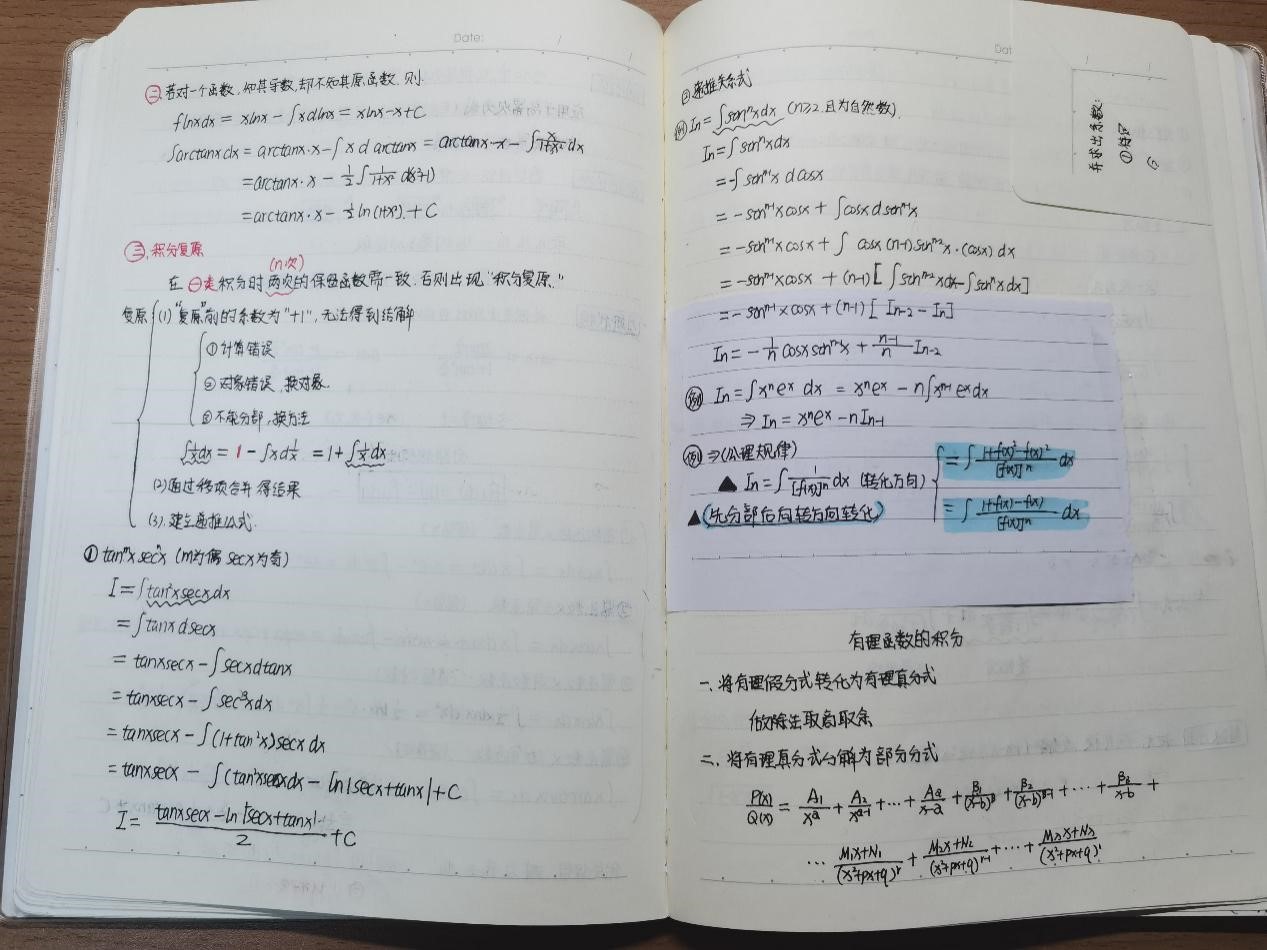 Date:
㊁ 若对一个函数,知其导数,却不知其原函数,则
∫lnxdx = xlnx - ∫xdlnx = xlnx-x+C
∫arctanxdx = arctanx·x-∫x d arctanx = arctanx·x - ∫x/(1+x²) dx
=arctanx·x - 1/2∫1/(1+x²) d(x²+1)
=arctanx·x - 1/2 ln(1+x²) + C
㊂. 积分复原
(n次)
在㊀类积分时两次的保留函数需一致,否则出现"积分复原."
复原 (1)"复原"前的系数为"+1",无法得到结解
①计算错误
②对象错误,换对象.
③不能分部,换方法
∫1/x dx = 1 - ∫xd1/x = 1+∫1/x dx
(2)通过移项合并得结果
(3).建立递推公式.
① tanᵐx secⁿx (m为偶 secx为奇)
I=∫tan²xsecxdx
=∫tanxdsecx
= tanxsecx - ∫secxdtanx
=tanxsecx - ∫sec³xdx
=tanxsecx - ∫(1+tan²x)secxdx
=tanxsecx - ∫(tan²xsecxdx - ln|secx+tanx|+C
I= (tanxsecx-ln|secx+tanx|)/2 +C
Dat
②递推关系式
例 In=∫sinⁿxdx (n≥2.且为自然数).
In=∫sinⁿxdx
=-∫sinⁿ⁻¹x dcosx
= -sinⁿ⁻¹xcosx + ∫cosxdsinⁿ⁻¹x
= -sinⁿ⁻¹xcosx + ∫ cosx(n-1)sinⁿ⁻²x·(cosx)dx
=-sinⁿ⁻¹xcosx + (n-1)[∫sinⁿ⁻²xdx-∫sinⁿxdx]
=-sinⁿ⁻¹xcosx+(n-1)[In-2-In]
In=-1/n cosxsinⁿ⁻¹x+(n-1)/n In-2
例 In=∫xⁿeˣ dx = xⁿeˣ - n∫xⁿ⁻¹eˣdx
⇒ In= xⁿeˣ-nIn-1
例⇒(公理规律)
▲ In=∫1/[f(x)]ⁿ dx (转化方向)
=∫(1+f(x)²-f(x)²)/[f(x)]ⁿ dx
=∫(1+f(x)-f(x))/[f(x)]ⁿ dx
▲(先分部后向转方向转化)
有理函数的积分
一、将有理假分式转化为有理真分式
做除法取商取余
二、将有理真分式分解为部分分式
P(x)/Q(x) = A₁/xᵃ + A₂/xᵃ⁻¹ +…+ Aa/(x-a) + B₁/(x-b)ᵝ + B₂/(x-b)ᵝ⁻¹ +…+ Bβ/(x-b) +
… (M₁x+N₁)/(x²+px+q)ʳ + (M₂x+N₂)/(x²+px+q)ʳ⁻¹ +…+ (Mrx+Nr)/(x²+px+q)¹